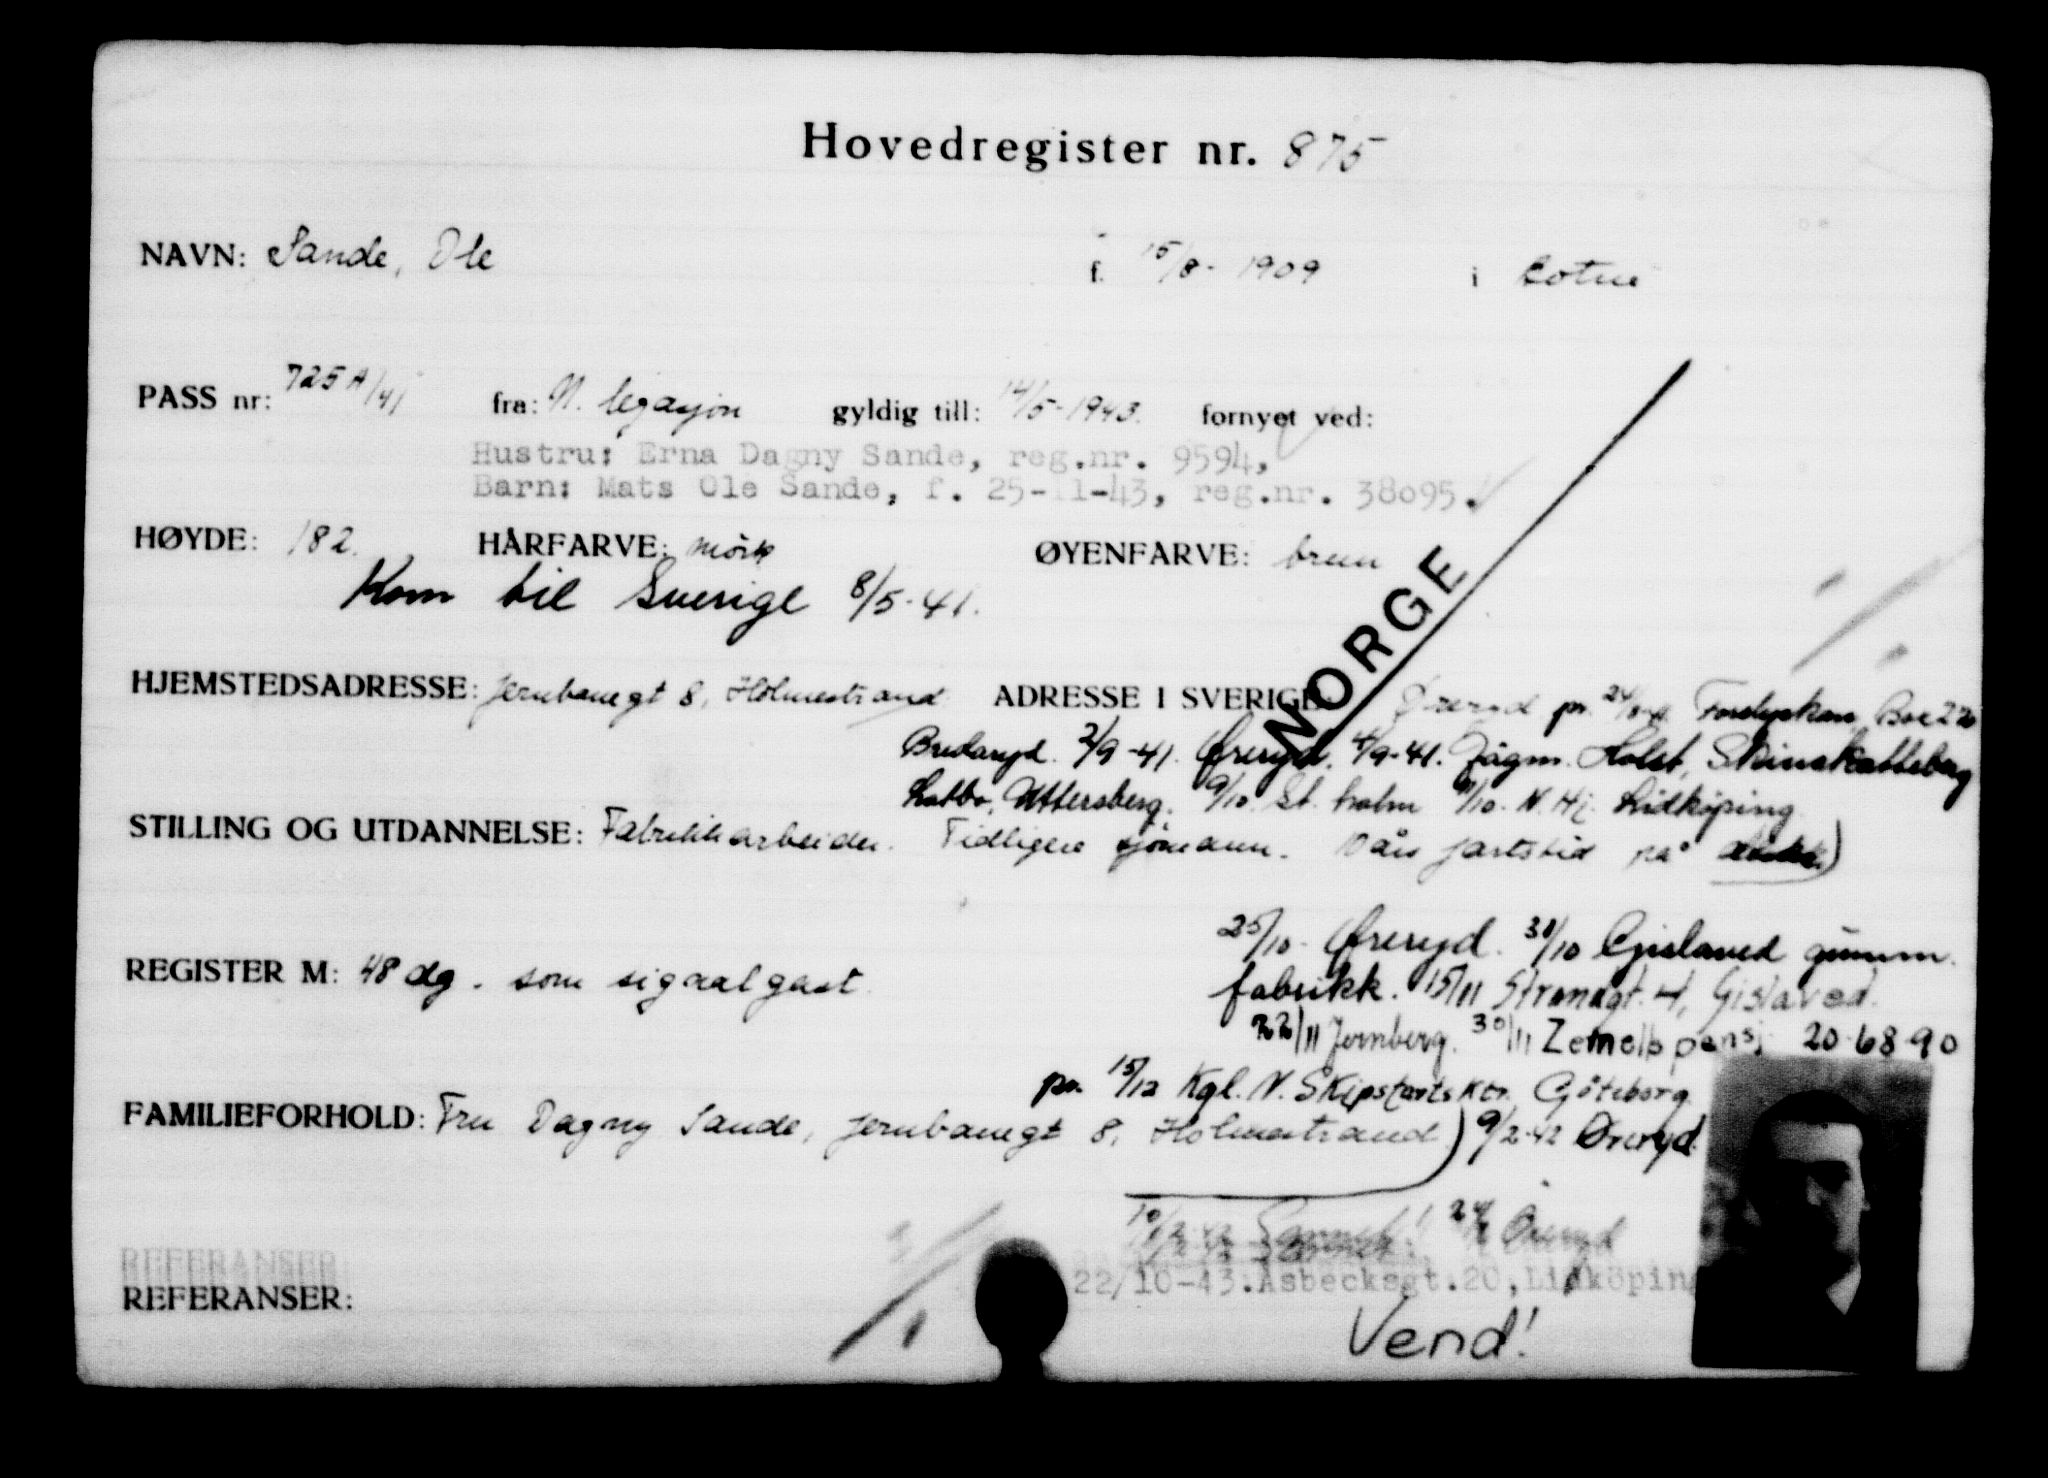 Hovedregister nr. 875
NAVN: Sande, Ole f. 15/8- 1909 i Botne
PASS nr: 725 A/41 fra: N. legasjon gyldig till: 14/5-1943. fornyet ved:
Hustru: Erna Dagny Sande, reg.nr. 9594,
Barn: Mats Ole Sande, f. 25-11-43, reg.nr. 38095.
HØYDE: 182. HÅRFARVE: mørk ØYENFARVE: brun
Kom til Sverige 8/5-41.
NORGE
HJEMSTEDSADRESSE: Jernbanegt 8, Holmestrand ADRESSE I SVERIGE: Øreryd pr. Box 220
Bredaryd. 2/9-41. Øreryd. 4/9-41. Jägm. Holst, Skinnskatteberg
Uttersberg. 9/10. St. holm 11/10. N. Hj. Lidköping
STILLING OG UTDANNELSE: Fabrikkarbeider. Tidligere sjømann. 10 års fartstid på
25/10- Øreryd. 30/10 Gislaved gumm.
REGISTER M: 48 dg. som signalgast
fabrikk. 15/11 Strandgt. 4, Gislaved.
22/11 Jernberg. 30/11 pensj 20-68-90
pr. 15/12 Kgl. N. Skipsfartsktr. Göteborg
FAMILIEFORHOLD: Fru Dagny Sande, Jernbanegt 8, Holmestrand) 9/2-42 Öreryd.
Öreryd
22/10-43. Åsbecksgt. 20, Lidköping
REFERANSER
REFERANSER:
Vend!